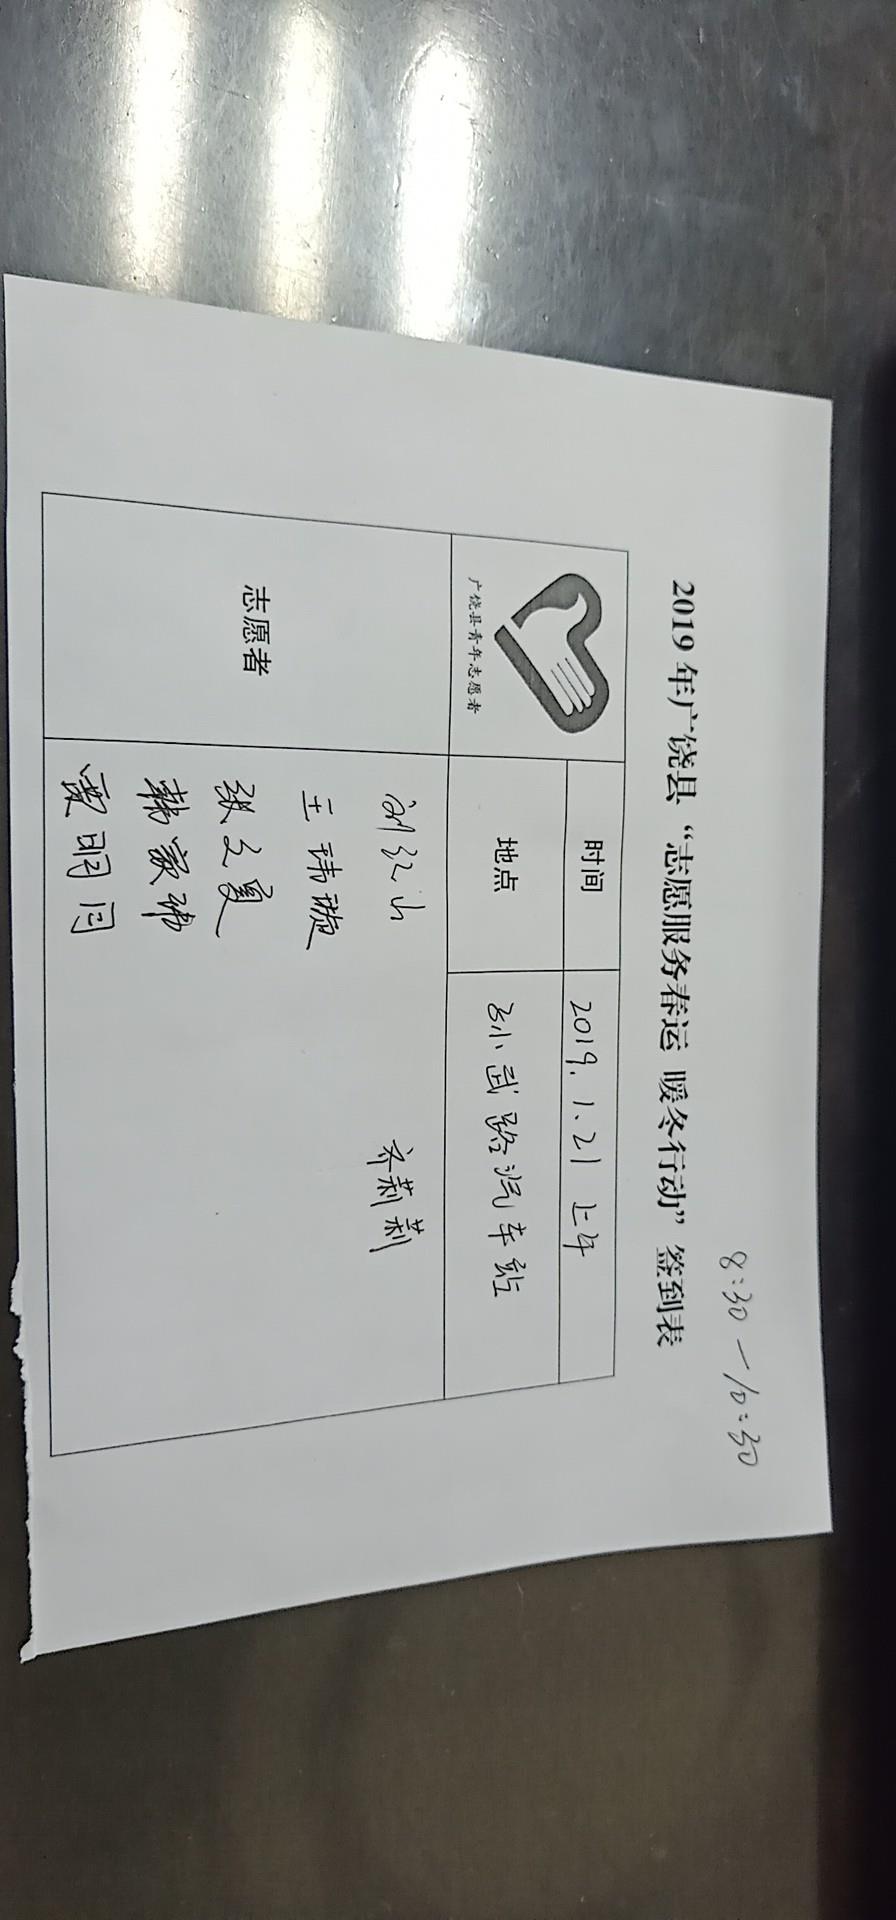 8:30—10:30
2019年广饶县“志愿服务春运 暖冬行动”签到表
广饶县青年志愿者
时间
2019.1.21 上午
地点
孙武路汽车站
志愿者
刘红山
齐莉莉
王玮璇
张文夏
韩家玮
贾明月